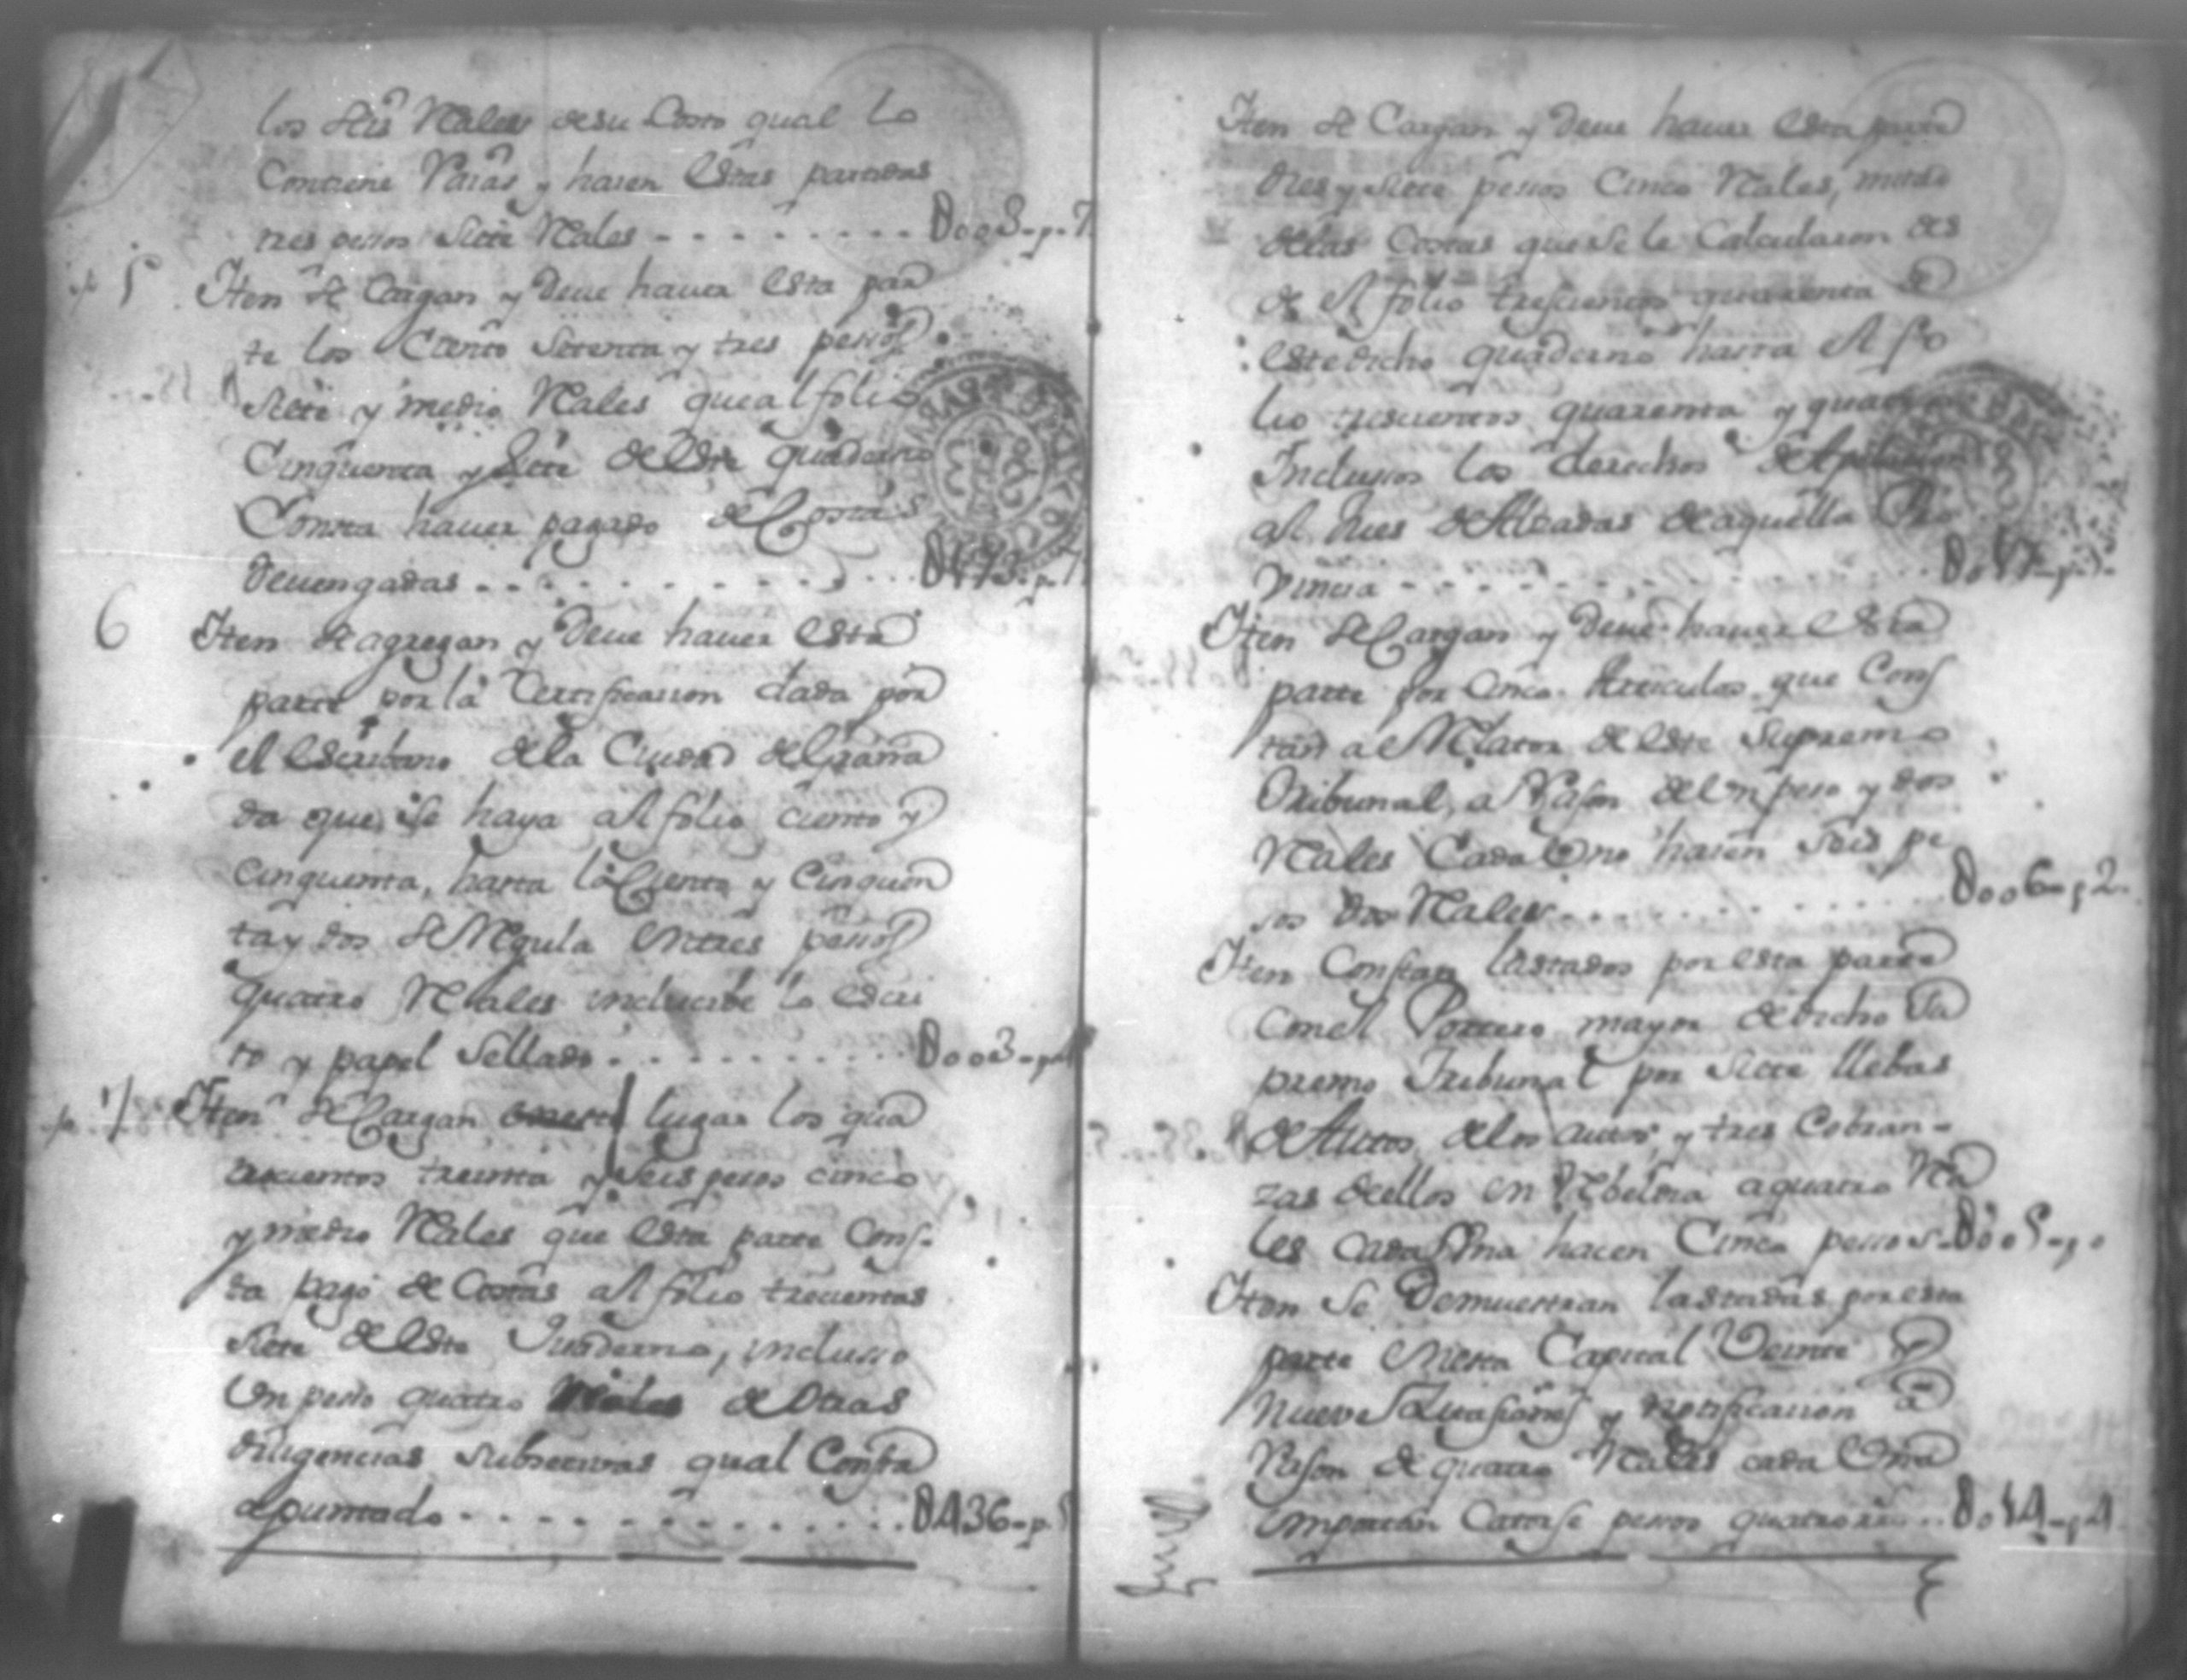 los seis Rales desu Costo qual lo
Contiene Varas y hacen estas partidas
tres pesos siete Rales - - - - - - - - D003-p-7
5 Iten se Cargan y Deue hauer esta par
te los Ciento setenta y tres pessos
siete y medio Rales que al folio
Cinquenta y siete de este quaderno
Consta hauer pagado de Costas
Deuengadas - - - - - - - - D173-p-7
6 Iten se agregan y Deue hauer esta
parte por la Certificasion dada por
el escribano de la Ciudad de Grana
da que se haya al folio ciento y
cinquenta, hasta la Ciento y Cinquen
ta y dos se Regula en tres pessos
quatro Rales inclucibe lo escri
to y papel sellado - - - - - - - - D003-p-4
7 Iten se Cargan lugar los qua
trocientos treinta y seis pesos cinco
y medio Rales que esta parte Cons-
ta pagó de Costas al folio trecientos
siete de este Quaderno, inclusso
Un peso quatro Riales de Otras
diligencias subsecivas qual Consta
apuntado - - - - - - - - D436-p-5
Iten se Cargan y Deue hauer esta parte
Dies y siete pessos Cinco Rales, mitad
de las Costas que se le Calcularon des
de el folio trescientos quarenta de
este dicho quaderno hasta el fo
lio trescientos quarenta y quatro
Inclusos los derechos
al Jues de Alzadas de aquella Pro
vincia - - - - - - - - D017-p-5
Iten se Cargan y Deue hauer esta
parte por Cinco Articulos que Cons
tan al Relator de este Supremo
Tribunal, a Rason de Un peso y dos
Rales Cada Uno hacen seis pe
sos dos Rales - - - - - - - - D006-p-2
Iten Constan lastados por esta parte
con el Portero mayor de dicho Su
premo Tribunal por siete llebas
de Autos, de los autos, y tres Cobran-
zas de ellos en Rebeldia a quatro Rea
les cada Una hacen Cinco pessos - D005-p-0
Iten se Demuestran lastadas por esta
parte en esta Capital Veinte y
nueve y notificacion a
Rason de quatro Rales cada Una
importan Catorse pessos quatro rs - - D014-p-4